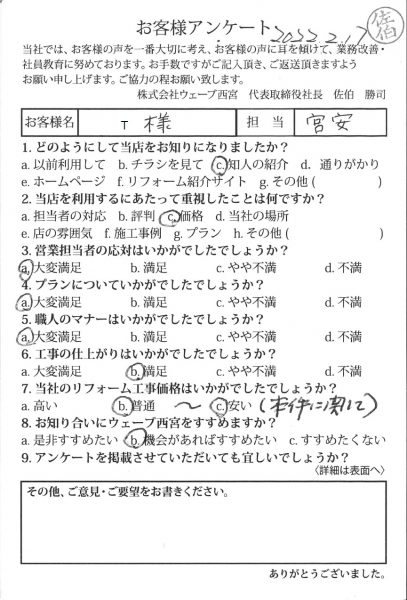 お客様アンケート 2022.2.17 佐伯
当社では、お客様の声を一番大切に考え、お客様の声に耳を傾けて、業務改善・
社員教育に努めております。お手数ですがご記入頂き、ご返送頂きますよう
お願い申し上げます。ご協力の程お願い致します。
株式会社ウェーブ西宮 代表取締役社長 佐伯 勝司
お客様名 T 様 担当 宮安
1. どのようにして当店をお知りになりましたか?
a. 以前利用して b. チラシを見て c. 知人の紹介 d. 通りがかり
e. ホームページ f. リフォーム紹介サイト g. その他 ( )
2. 当店を利用するにあたって重視したことは何ですか?
a. 担当者の対応 b. 評判 c. 価格 d. 当社の場所
e. 店の雰囲気 f. 施工事例 g. プラン h. その他 ( )
3. 営業担当者の応対はいかがでしたでしょうか?
a. 大変満足 b. 満足 c. やや不満 d. 不満
4. プランについていかがでしたでしょうか?
a. 大変満足 b. 満足 c. やや不満 d. 不満
5. 職人のマナーはいかがでしたでしょうか?
a. 大変満足 b. 満足 c. やや不満 d. 不満
6. 工事の仕上がりはいかがでしたでしょうか?
a. 大変満足 b. 満足 c. やや不満 d. 不満
7. 当社のリフォーム工事価格はいかがでしたでしょうか?
a. 高い b. 普通 〜 c. 安い (本件に関して)
8. お知り合いにウェーブ西宮をすすめますか?
a. 是非すすめたい b. 機会があればすすめたい c. すすめたくない
9. アンケートを掲載させていただいても宜しいでしょうか?
〈詳細は表面へ〉
その他、ご意見・ご要望をお書きください。
ありがとうございました。